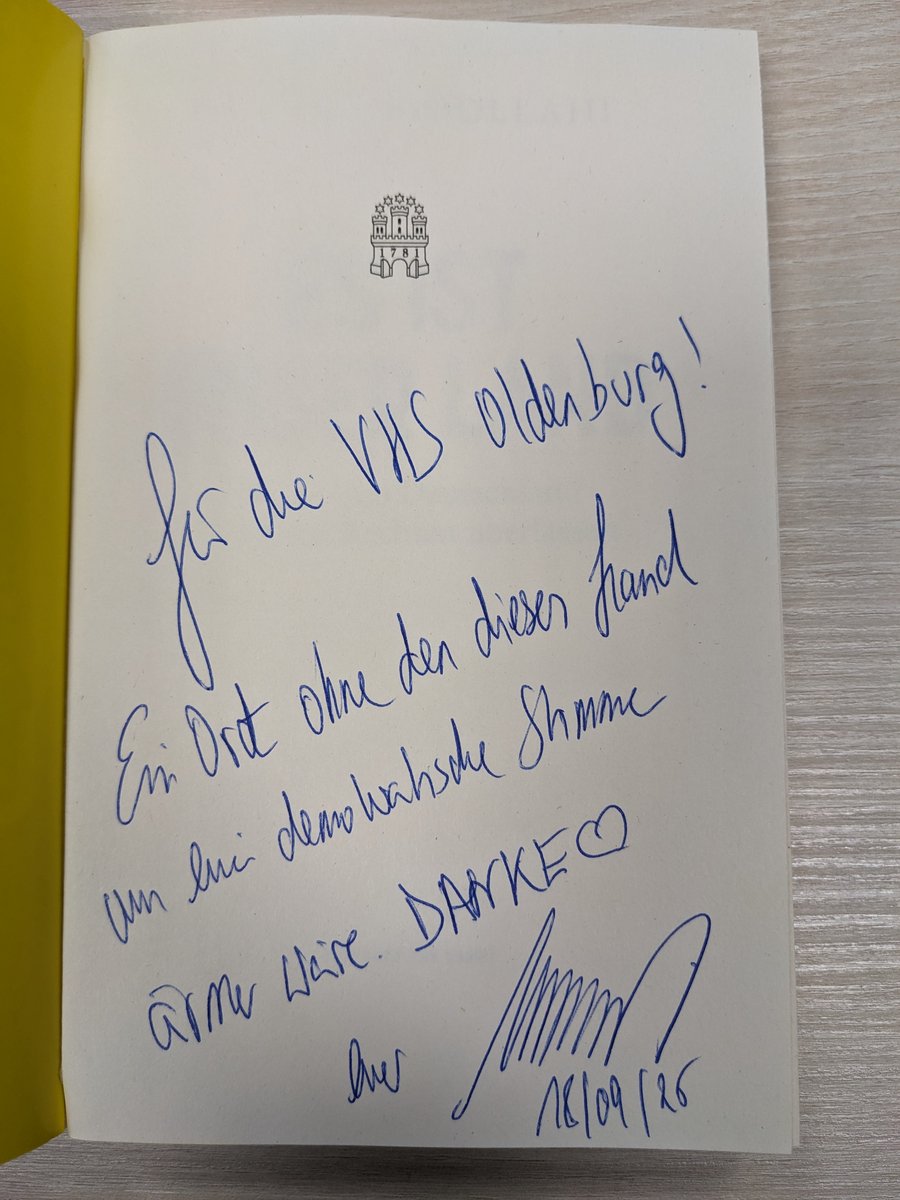 1781
für die VHS Oldenburg!
Ein Ort ohne den dieses Land
um eine demokratische Stimme
ärmer wäre. DANKE♡
Euer
18/09/25